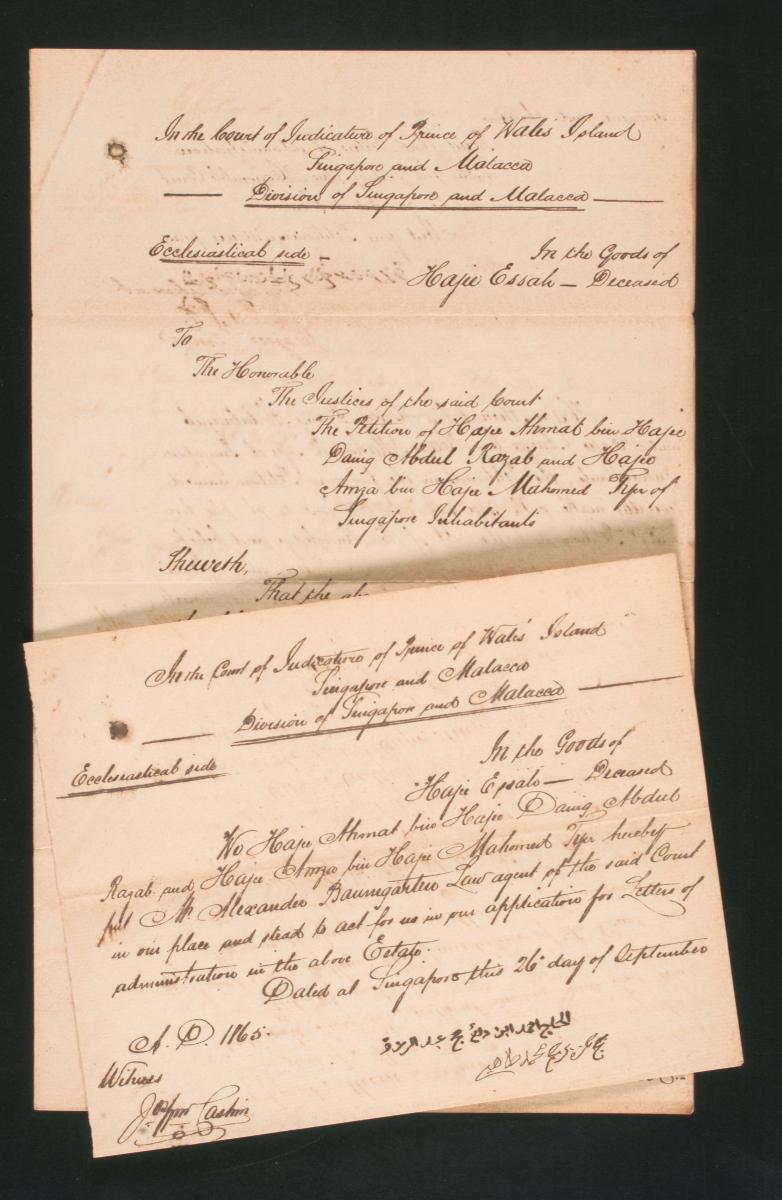 In the Court of Judicature of Prince of Wales Island
Singapore and Malacca
Division of Singapore and Malacca
Ecclesiastical side
In the Goods of
Hajee Essah — Deceased
To
The Honorable
The Justices of the said Court
The Petition of Hajee Ahmat bin Hajee
Daing Abdul Razab and Hajee
Amza bin Hajee Mahomed Typ of
Singapore Inhabitants
Sheweth,
That the
In the Court of Judicature of Prince of Wales' Island
Singapore and Malacca
Division of Singapore and Malacca
Ecclesiastical side
In the Goods of
Hajee Essah — Deceased
We Hajee Ahmat bin Hajee Daing Abdul
Razab and Hajee Amza bin Hajee Mahomed Typ hereby
put Mr Alexander Baumgarten Law agent of the said Court
in our place and stead to act for us in our application for Letters of
administration in the above Estate.
Dated at Singapore this 26 day of September
A. D. 1865.
Witness
Cashin